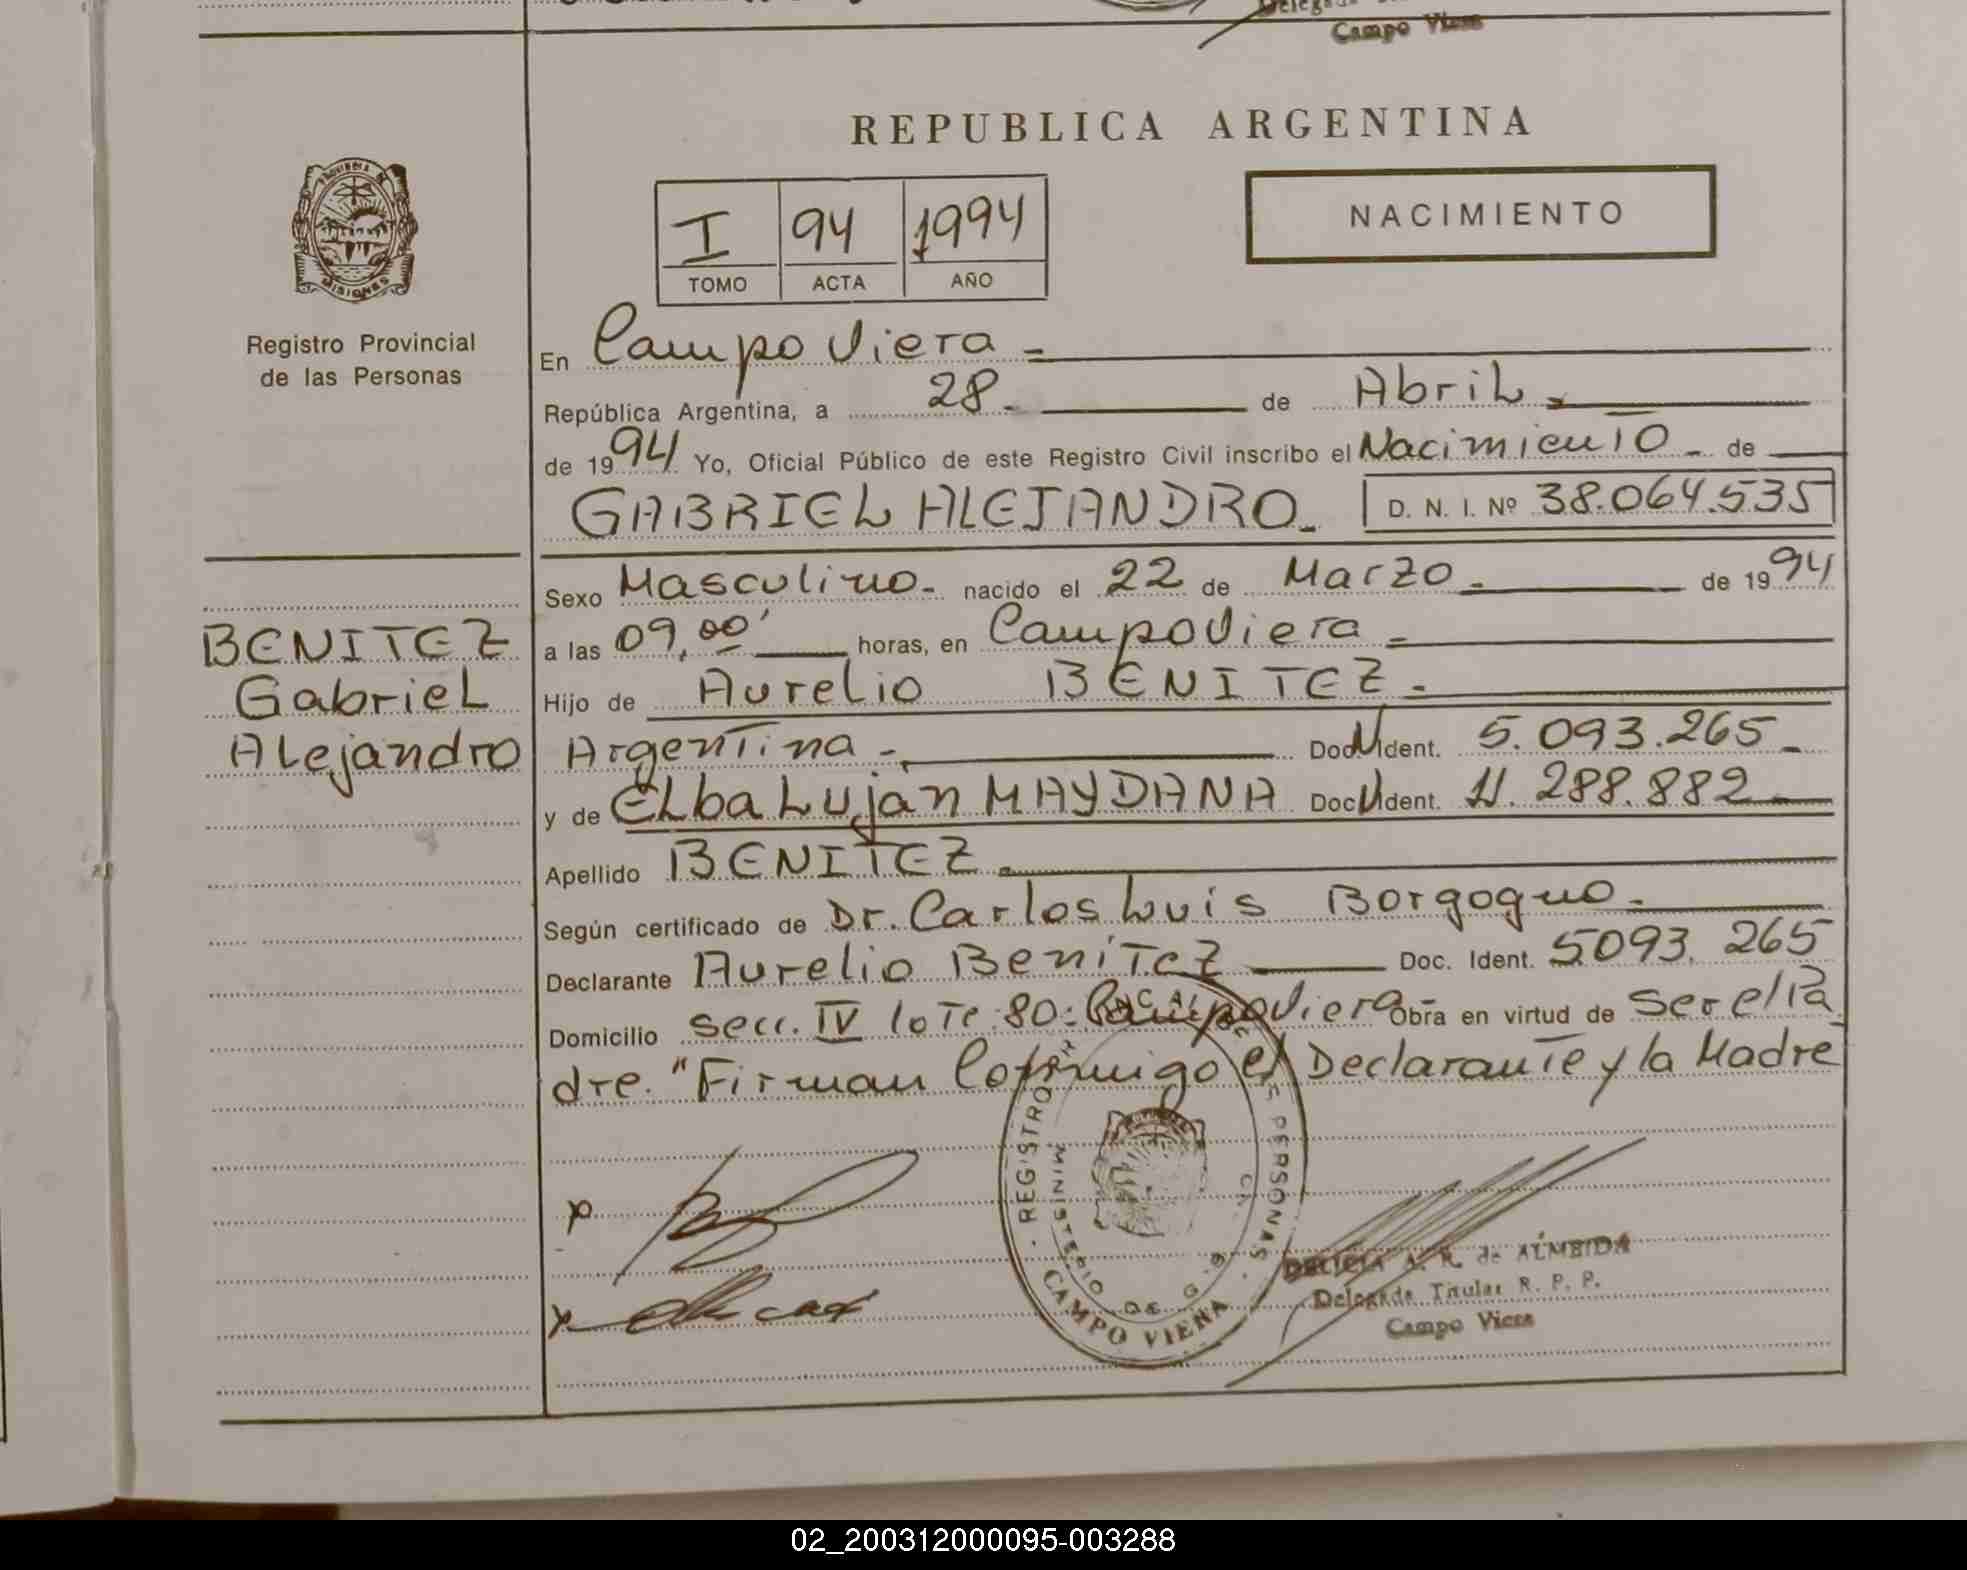 Delegada
Campo Viera
REPUBLICA ARGENTINA
I 94 1994
TOMO ACTA AÑO
NACIMIENTO
PROVINCIA DE
MISIONES
Registro Provincial
de las Personas
BENITEZ
Gabriel
Alejandro
En Campo Viera =
República Argentina, a 28 - de Abril -
de 1994 Yo, Oficial Público de este Registro Civil inscribo el Nacimiento - de
GABRIEL ALEJANDRO - D. N. I. Nº 38.064.535
Sexo Masculino - nacido el 22 de Marzo - de 1994
a las 09,00' horas, en Campo Viera =
Hijo de Aurelio BENITEZ -
Argentina - Doc. M Ident. 5.093.265 -
y de Elba Lujan MAYDANA Doc. U Ident. 11.288.882 -
Apellido BENITEZ -
Según certificado de Dr. Carlos Luis Borgogno -
Declarante Aurelio Benitez Doc. Ident. 5093.265
Domicilio secc. IV lote 80 - Campo Viera Obra en virtud de Ser el Pa
dre. "Firman Conmigo el Declarante y la Madre
REGISTRO PERSONAS
MINISTERIO DE G.
CAMPO VIERA
DELICIA A. R. de ALMEIDA
Delegada Titular R. P. P.
Campo Viera
02_200312000095-003288